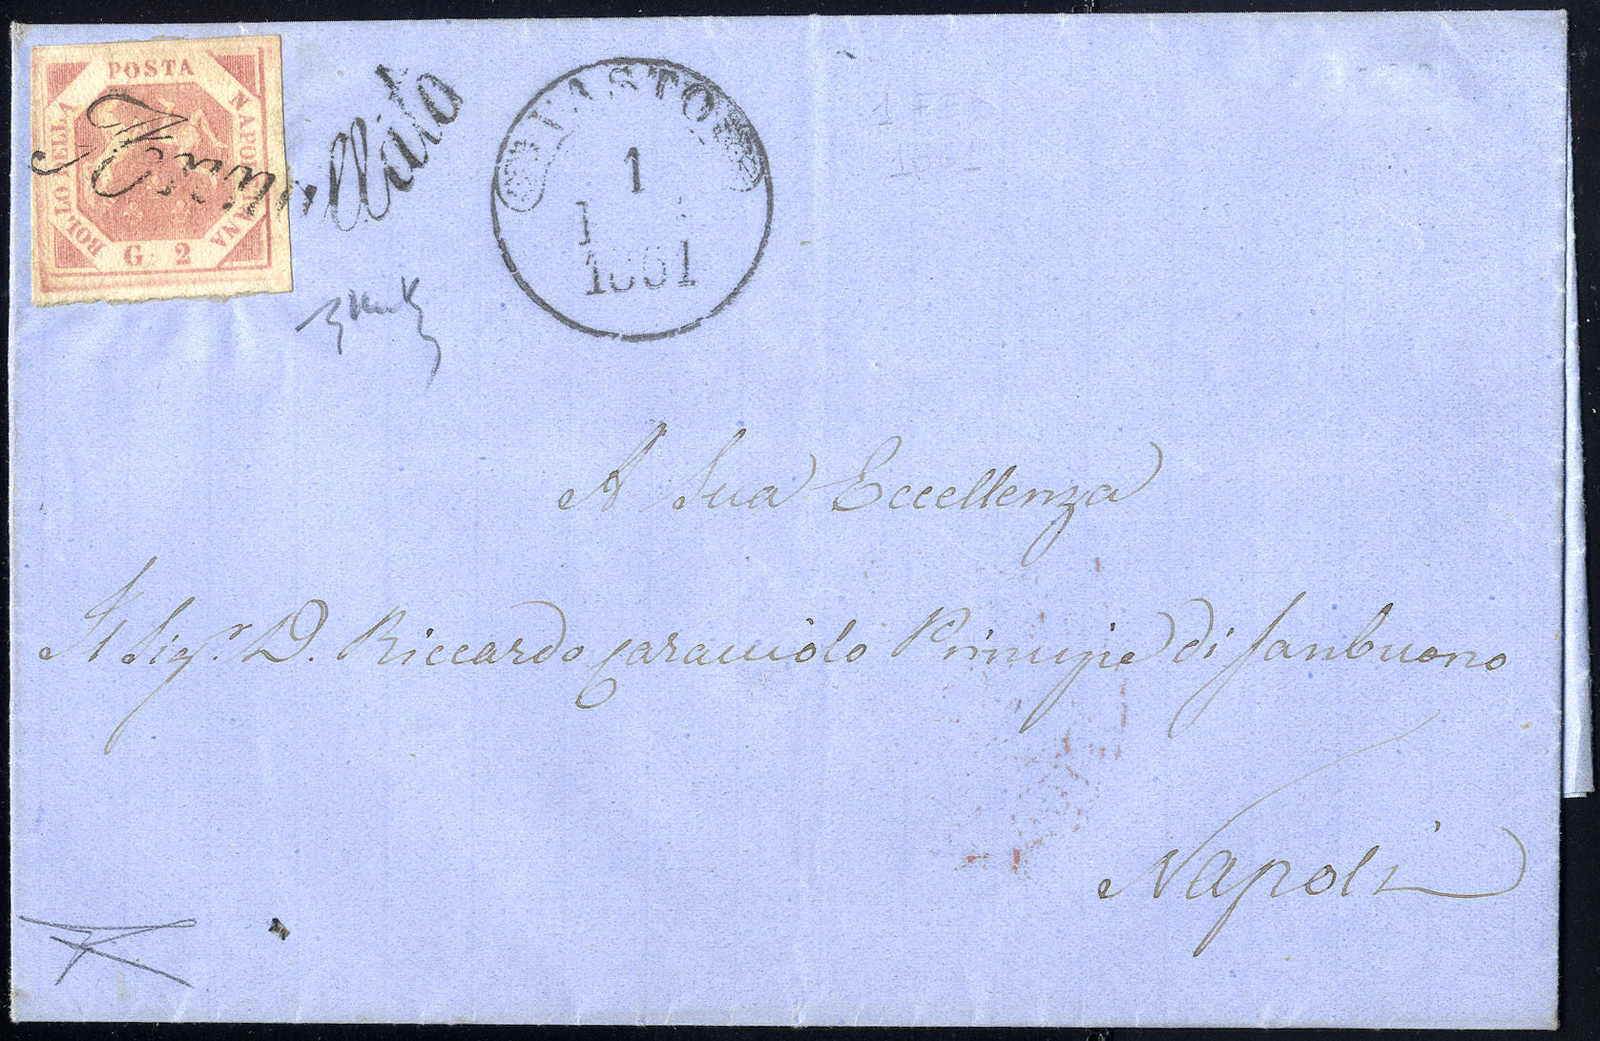 POSTA
NAPOLETANA
BOLLO DELLA
G. 2
Annullato
VASTO
1
1861
A Sua Eccellenza
Il Sigr. D. Riccardo Caracciolo Principe di Sanbuono
Napoli